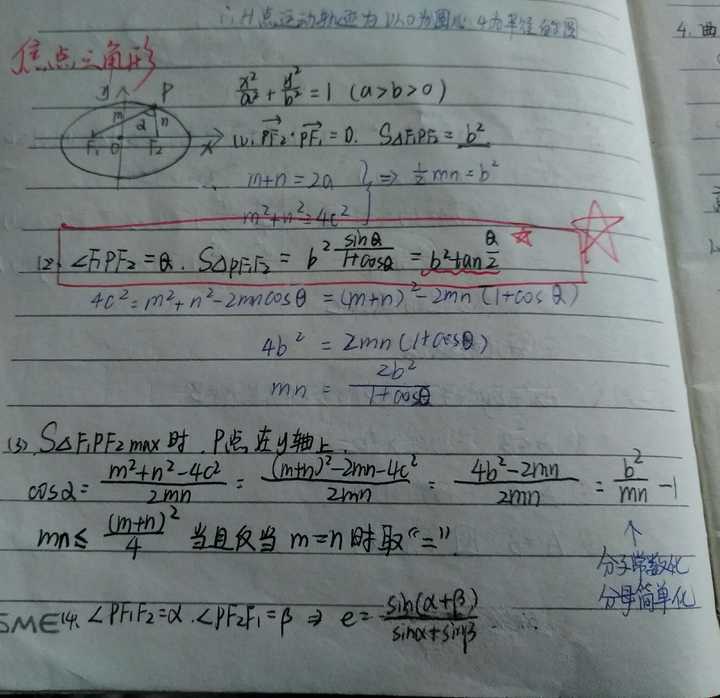 ∴H点运动轨迹为以O为圆心,4为半径的圆
4. 曲
焦点三角形
y P
m α n
F₁ O F₂ x
x²/a² + y²/b² = 1 (a>b>0)
(1). PF₂·PF₁ = 0. S△F₁PF₂ = b²
m+n=2a } ⇒ ½mn=b²
m²+n²=4c²
(2). ∠F₁PF₂=θ. S△PF₁F₂ = b² sinθ/(1+cosθ) = b²tan θ/2
4c²=m²+n²-2mncosθ =(m+n)²-2mn(1+cosθ)
4b² = 2mn(1+cosθ)
mn = 2b²/(1+cosθ)
(3). S△F₁PF₂ max时,P点在y轴上.
cosα = (m²+n²-4c²)/2mn = ((m+n)²-2mn-4c²)/2mn = (4b²-2mn)/2mn = b²/mn -1
mn≤ (m+n)²/4 当且仅当 m=n时取“=”.
↑
分子常数化
分母简单化
SME
(4. ∠PF₁F₂=α.∠PF₂F₁=β ⇒ e= sin(α+β)/(sinα+sinβ)